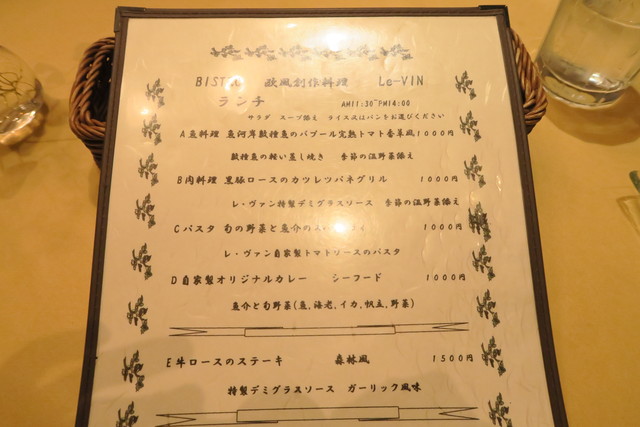 BISTRO 欧風創作料理 Le-VIN
ランチ AM11:30~PM14:00
サラダ スープ添え ライス又はパンをお選びください
A魚料理 魚河岸数種魚のバプール完熟トマト香草風1000円
数種魚の軽い蒸し焼き 季節の温野菜添え
B肉料理 黒豚ロースのカツレツパネグリル 1000円
レ・ヴァン特製デミグラスソース 季節の温野菜添え
Cパスタ 旬の野菜と魚介の 1000円
レ・ヴァン自家製トマトソースのパスタ
D自家製オリジナルカレー シーフード 1000円
魚介と旬野菜(魚、海老、イカ、帆立、野菜)
E牛ロースのステーキ 森林風 1500円
特製デミグラスソース ガーリック風味